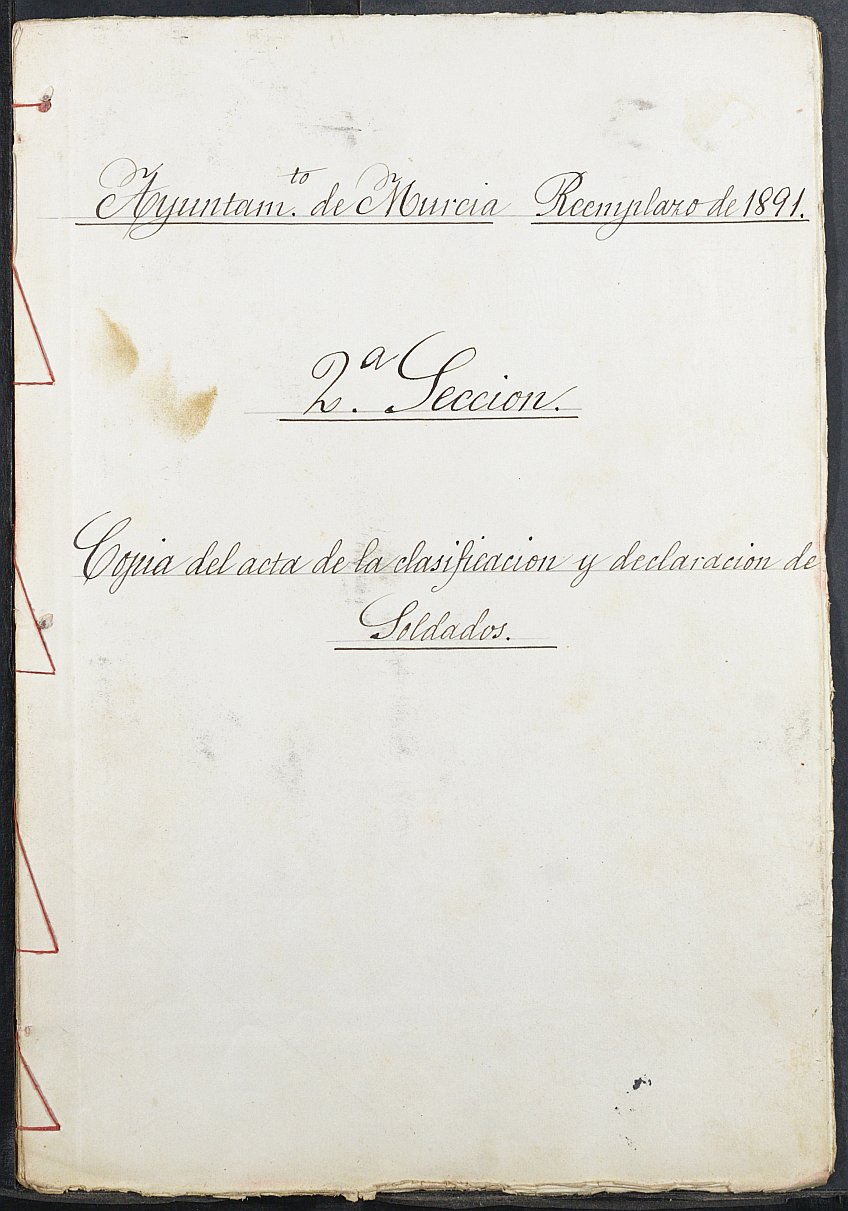 Ayuntam.to de Murcia Reemplazo de 1891.
2.a Seccion.
Copia del acta de la clasificacion y declaracion de
Soldados.